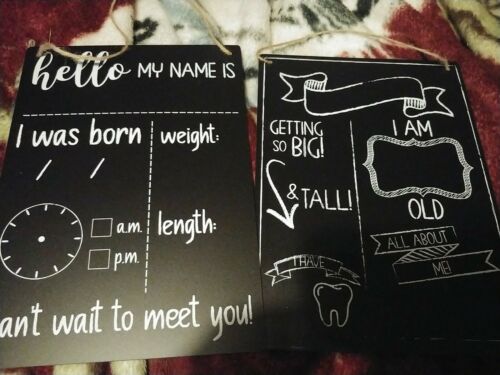 hello MY NAME IS
I was born
weight:
/ /
a.m.
p.m.
length:
an't wait to meet you!
GETTING
SO BIG!
& TALL!
I HAVE
I AM
OLD
ALL ABOUT
ME!